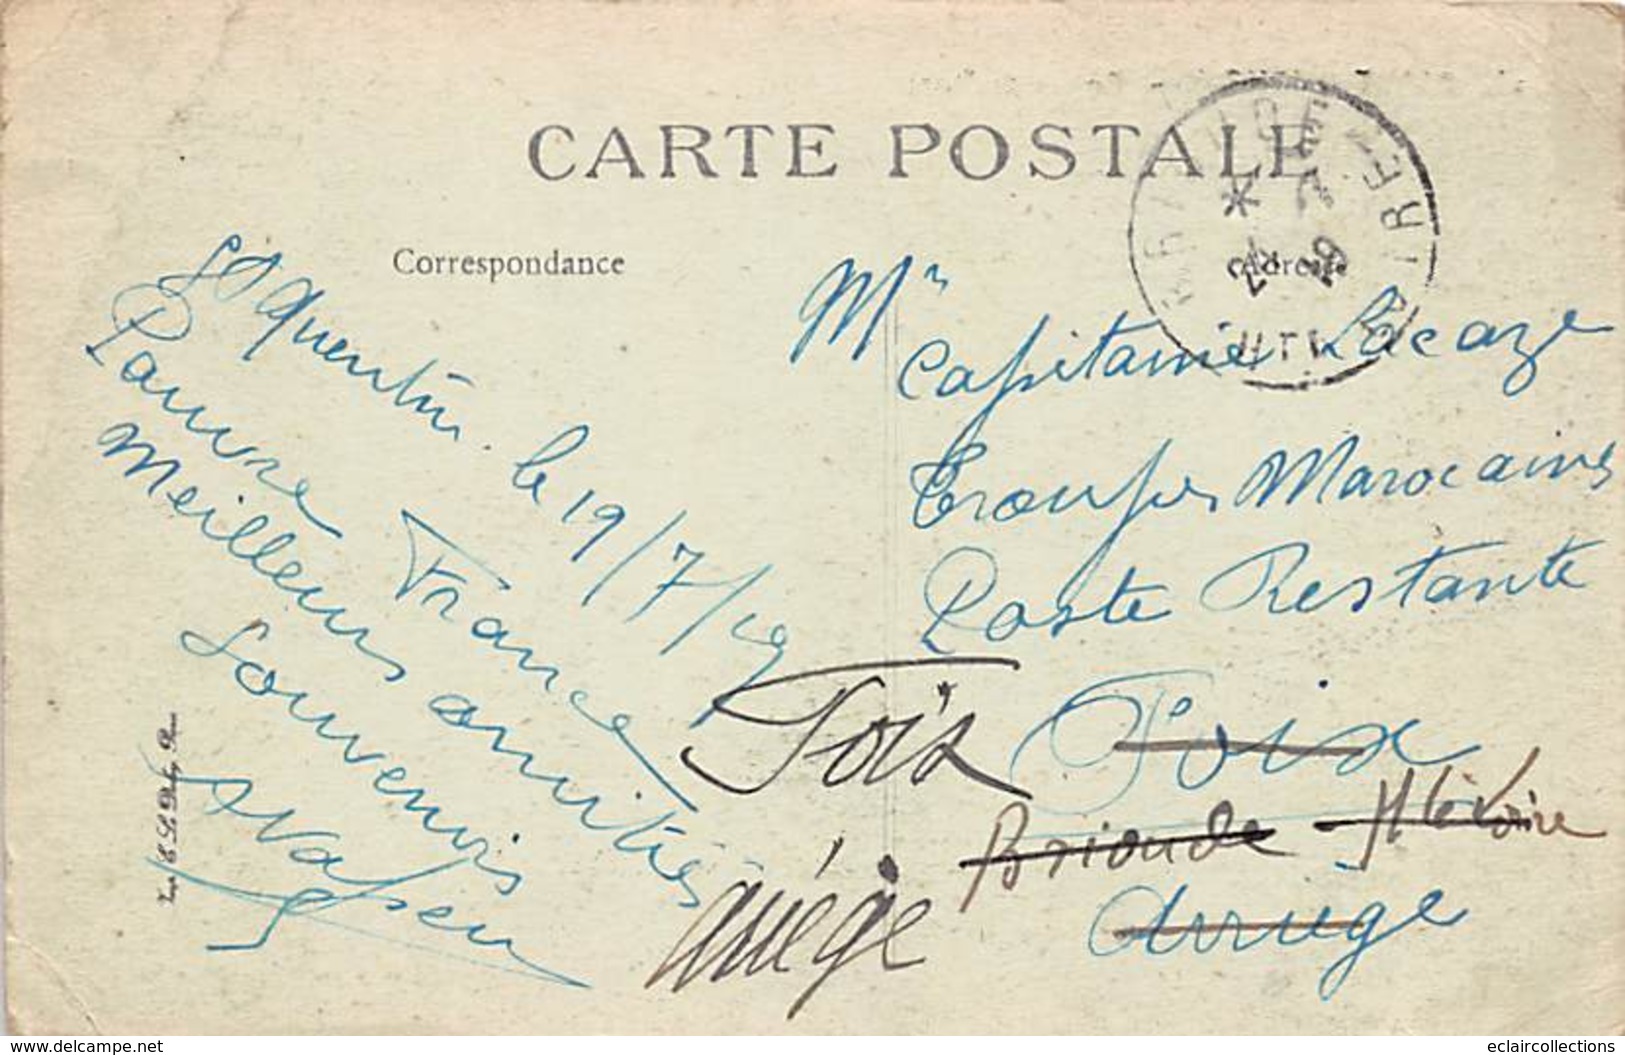 CARTE POSTALE
Correspondance
St Quentin le 19/7/19
Pauvre France
Meilleurs amitiés
Souvenirs
Mr
Capitaine Lacaze
Troupes Marocaines
Poste Restante
Foix
Foix
Brioude Hte Loire
Ariège
Ariege
delcampe.net
eclaircollections